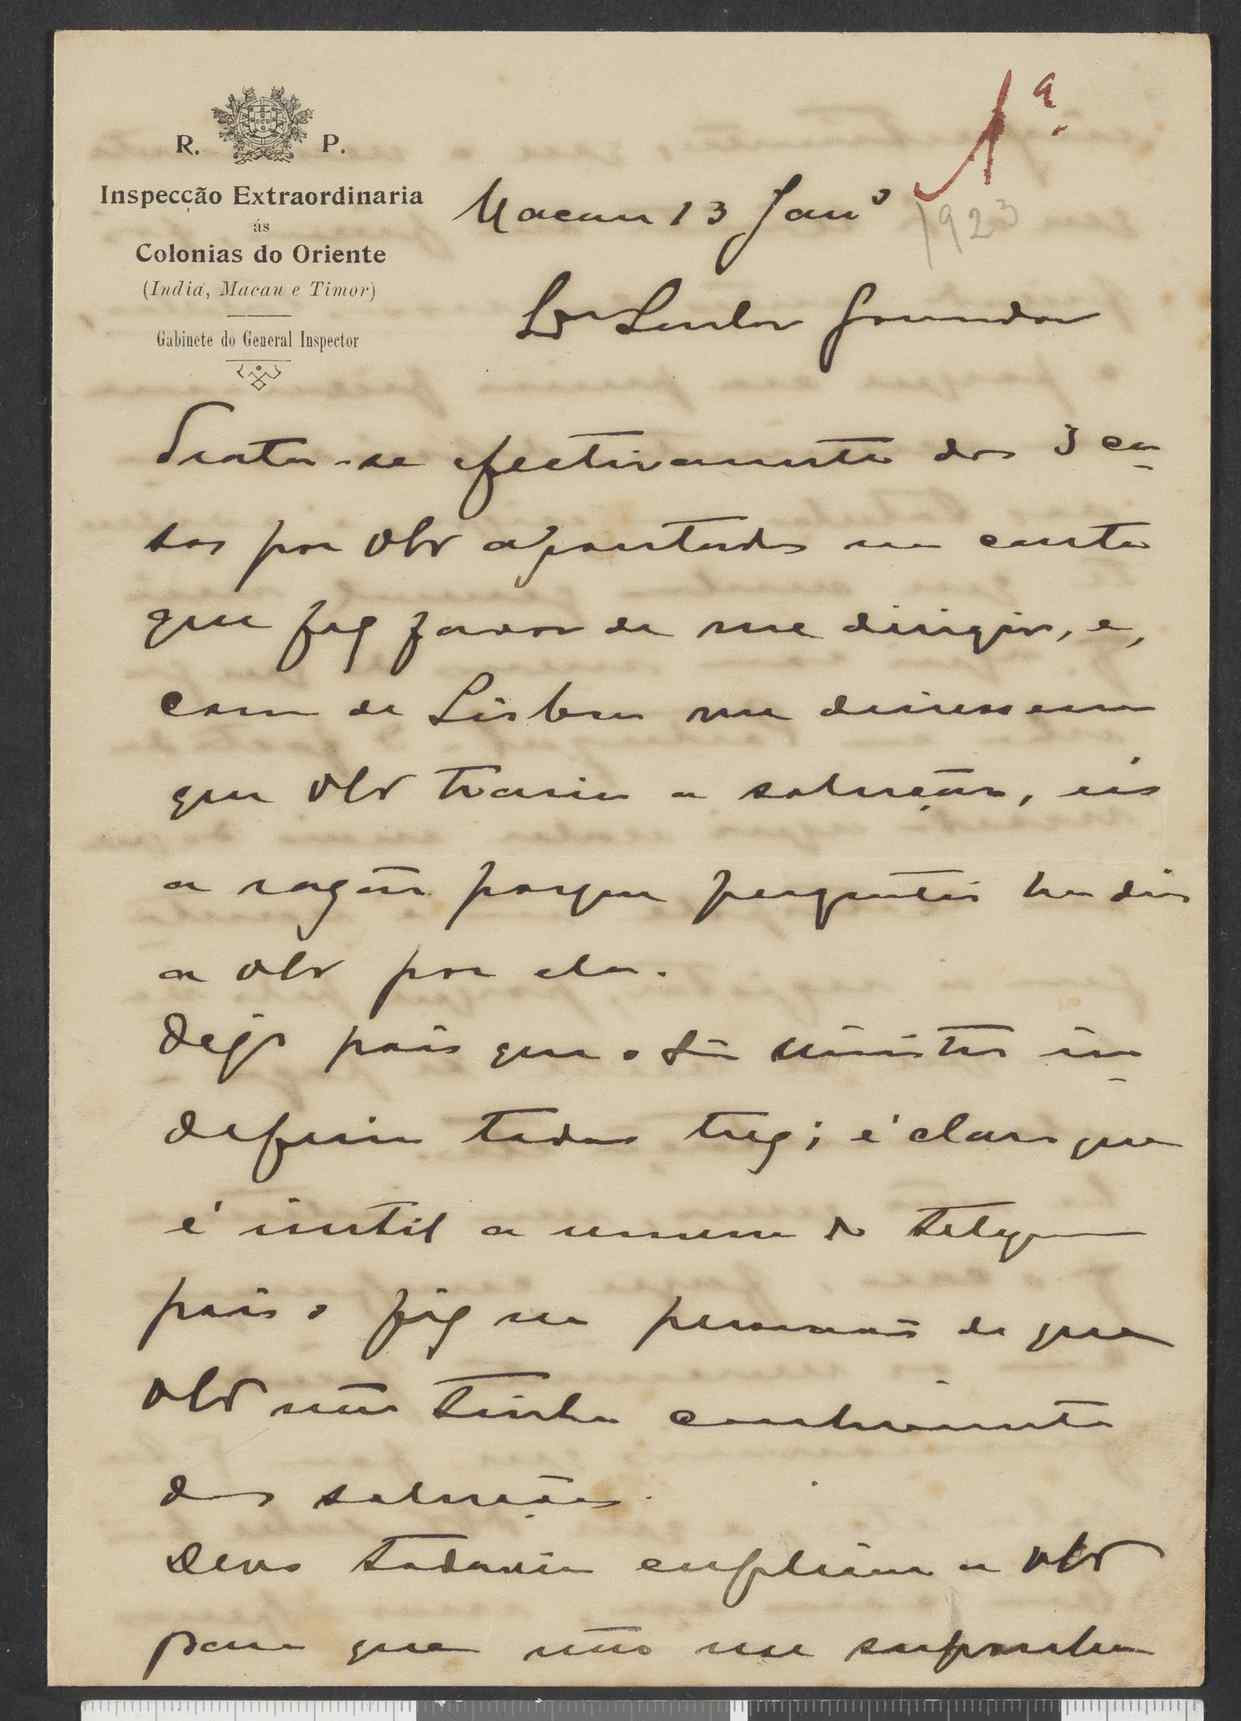 1ª
R. P.
Inspecção Extraordinaria
ás
Colonias do Oriente
(India, Macau e Timor)
Gabinete do General Inspector
Macau 13 Janº
1923
Senhor Governador
Trata-se efectivamente dos 3 ca
sos por VExª apontados na carta
que fez favor de me dirigir, e,
como de Lisboa me dissessem
que VExª trazia a solução, eis
a razão porque perguntei ha dias
a VExª por ela.
Vejo pois que o Snr Ministro in
deferiu todas trez; é claro que
é inutil a remessa do telegrama
pois o fiz na persuasão de que
VExª não tinha conhecimento
das soluções.
Devo todavia explicar a VExª
para que não me suponha